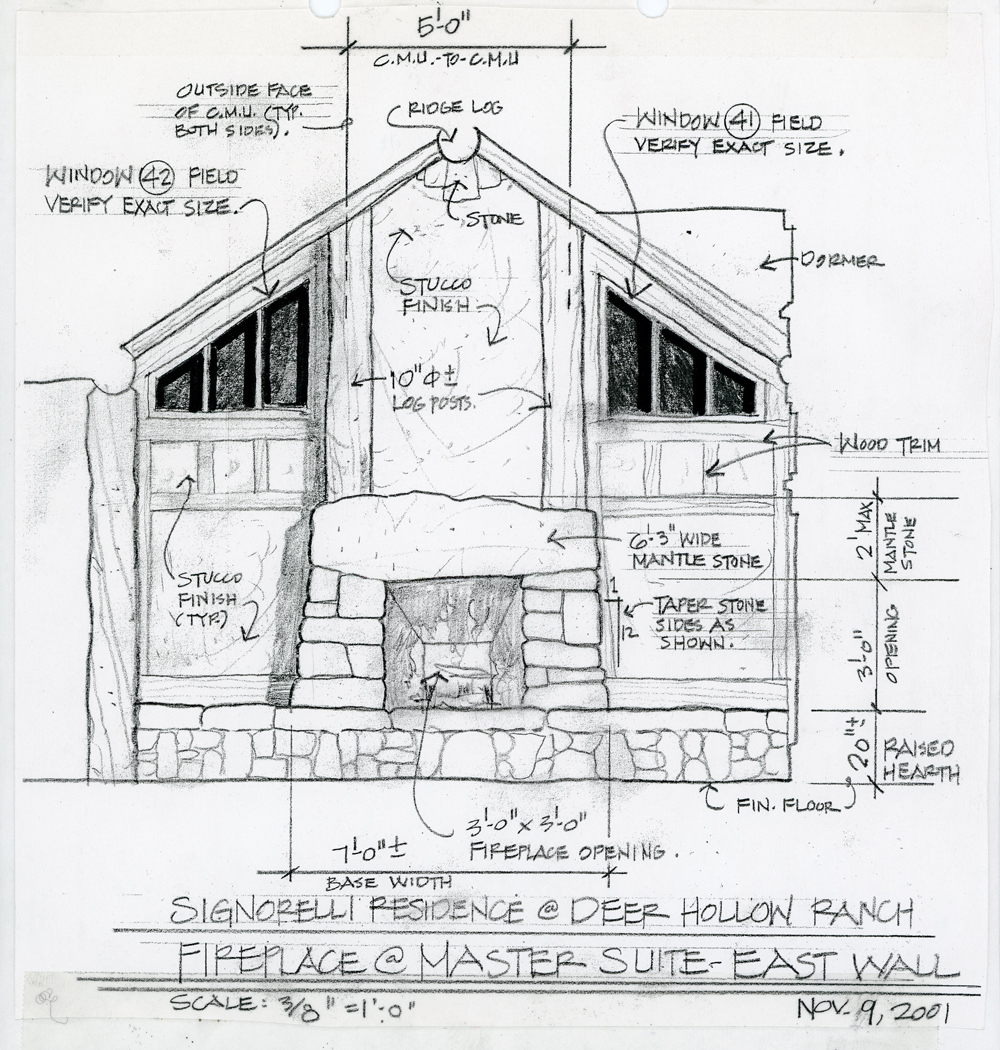 5'-0"
C.M.U.-TO-C.M.U
OUTSIDE FACE
OF C.M.U. (TYP.
BOTH SIDES).
RIDGE LOG
WINDOW 41 FIELD
VERIFY EXACT SIZE.
WINDOW 42 FIELD
VERIFY EXACT SIZE.
STONE
DORMER
STUCCO
FINISH
10"Φ±
LOG POSTS.
WOOD TRIM
6'-3" WIDE
MANTLE STONE
2' MAX.
MANTLE
STONE
STUCCO
FINISH
(TYP.)
1
12
TAPER STONE
SIDES AS
SHOWN.
3'-0"
OPENING
20"±
RAISED
HEARTH
FIN. FLOOR
3'-0" x 3'-0"
FIREPLACE OPENING.
7'-0"±
BASE WIDTH
SIGNORELLI RESIDENCE @ DEER HOLLOW RANCH
FIREPLACE @ MASTER SUITE- EAST WALL
SCALE: 3/8" =1'-0"
NOV. 9, 2001